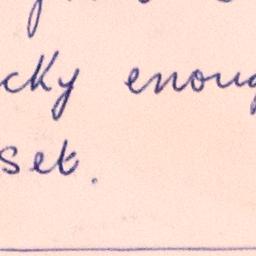 cky enoug
set.